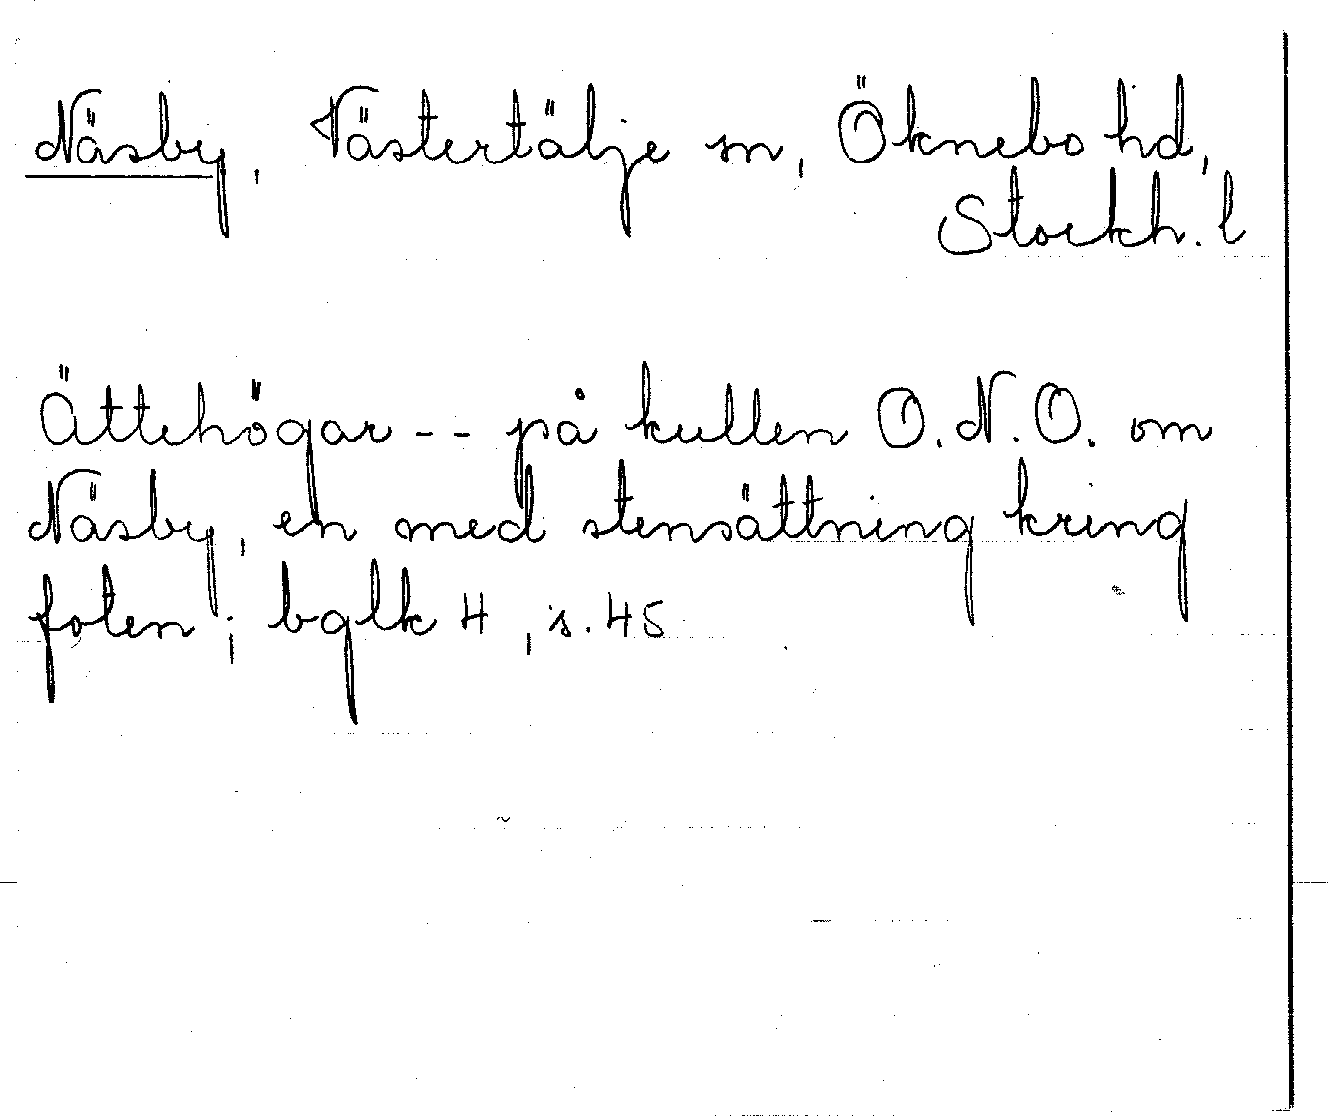 Näsby, Västertälje sn, Öknebo hd,
Stockh. l
Ättehögar -- på kullen O.N.O. om
Näsby, en med stensättning kring
foten; bglk 4, s. 45